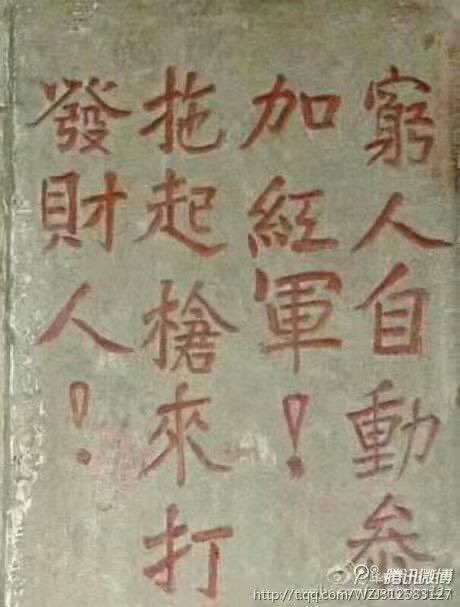 窮人自動参
加紅軍！
拖起槍來打
發財人！
腾讯微博
http://t.qq.com/WZJ312583127